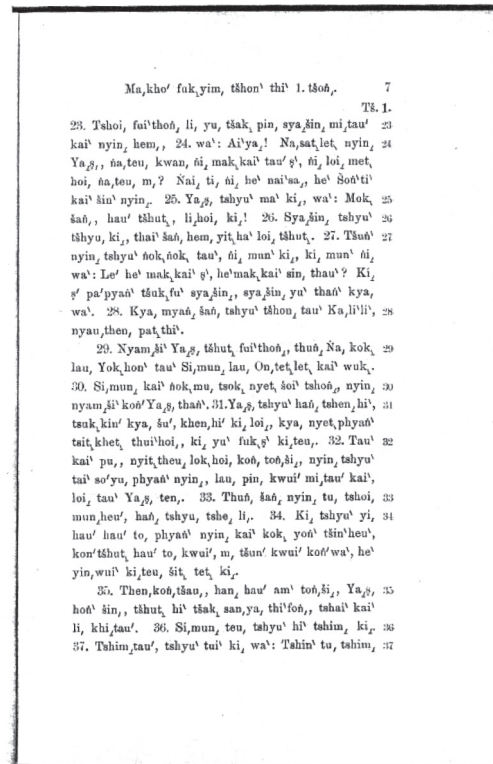 Ma̗kho′ fuk̖yim, tšhon‵ thi‵ 1. tšoṅ̗. 7
Tš. 1.
23. Tshoi, fui‵thoṅ̗ li, yu, tšak̖ pin, sya̗šin̗ mi̗tau′ 23
kai‵ nyin̗ hem,, 24. wa‵: Ai‵ya̗! Na̗sat̖let̖ nyin̗ 24
Ya̗ṣ̗, ṅa,teu, kwan, ṅi̗ mak̖kai‵ tau′ ṣ‵, ṅi̗ loi̗ met̖
hoi, ṅa,teu, m̗? Ṅai̗ ti, ṅi̗ he‵ nai‵sa̗, he‵ Šoṅ‵ti‵
kai‵ šin‵ nyin̗. 25. Ya̗ṣ̗ tshyu‵ ma‵ ki̗, wa‵: Mok̖ 25
šaṅ,, hau′ tšhut̖, li̗hoi, ki̗! 26. Sya̗šin̗ tshyu‵ 26
tšhyu, ki̗, thai‵ šaṅ, hem, yit̖ha‵ loi̗ tšhut̖. 27. Tšuṅ‵ 27
nyin̗ tshyu‵ ṅok̖ṅok̖ tau‵, ṅi̗ mun‵ ki̗, ki̗ mun‵ ṅi̗
wa‵: Le′ he‵ mak̖kai‵ ṣ‵, he‵mak̖kai‵ sin, thau‵? Ki̗
ṣ′ pa′pyaṅ‵ tšuk̖fu‵ sya̗šin̗, sya̗šin̗ yu‵ thaṅ‵ kya,
wa‵. 28. Kya, myaṅ̗ šaṅ, tshyu‵ tšhon̗ tau‵ Ka̗li‵li‵, 28
nyau,then, pat̖thi‵.
29. Nyam̗ši‵ Ya̗ṣ̗ tšhut̖ fui‵thoṅ̗, thuṅ̗ Ṅa, kok̖ 29
lau, Yok̖hon‵ tau‵ Si̗mun̗ lau, On,tet̖let̖ kai‵ wuk̖.
30. Si̗mun̗ kai‵ ṅok̖mu, tsok̖ nyet̖ šoi‵ tšhoṅ̗, nyin̗ 30
nyam̗ši‵ koṅ′Ya̗ṣ̗ thaṅ‵. 31.Ya̗ṣ̗ tshyu‵ haṅ̗ tshen̗hi‵, 31
tsuk̖kin′ kya, šu′, khen,hi′ ki̗ loi̗, kya, nyet̖phyaṅ‵
tsit̖khet̖ thui‵hoi,, ki̗ yu‵ fuk̖ṣ‵ ki̗teu,. 32. Tau‵ 32
kai‵ pu,, nyit̖theu̗ lok̖hoi, koṅ, toṅ̗ši̗, nyin̗ tshyu‵
tai‵ so′yu, phyaṅ‵ nyin̗, lau, pin, kwui′ mi̗tau′ kai‵,
loi̗ tau‵ Ya̗ṣ̗ ten,. 33. Thuṅ̗ šaṅ̗ nyin̗ tu, tshoi, 33
mun̗heu′, haṅ̗ tshyu, tshe̗ li,. 34. Ki̗ tshyu‵ yi, 34
hau′ hau′ to, phyaṅ‵ nyin̗ kai‵ kok̖ yoṅ‵ tšin‵heu‵,
kon′tšhut̖ hau′ to, kwui′, m̗ tšun′ kwui′ koṅ′wa‵, he‵
yin,wui‵ ki̗teu, šit̖ tet̖ ki̗.
35. Then,koṅ,tšau,, han̗ hau′ am‵ toṅ̗ši̗, Ya̗ṣ̗ 35
hoṅ‵ šin,, tšhut̖ hi‵ tšak̖ san,ya, thi‵foṅ,, tshai‵ kai‵
li, khi̗tau′. 36. Si̗mun̗ teu, tshyu‵ hi‵ tshim̗ ki̗. 36
37. Tshim̗tau′, tshyu‵ tui‵ ki̗ wa‵: Tshin‵ tu, tshim̗ 37